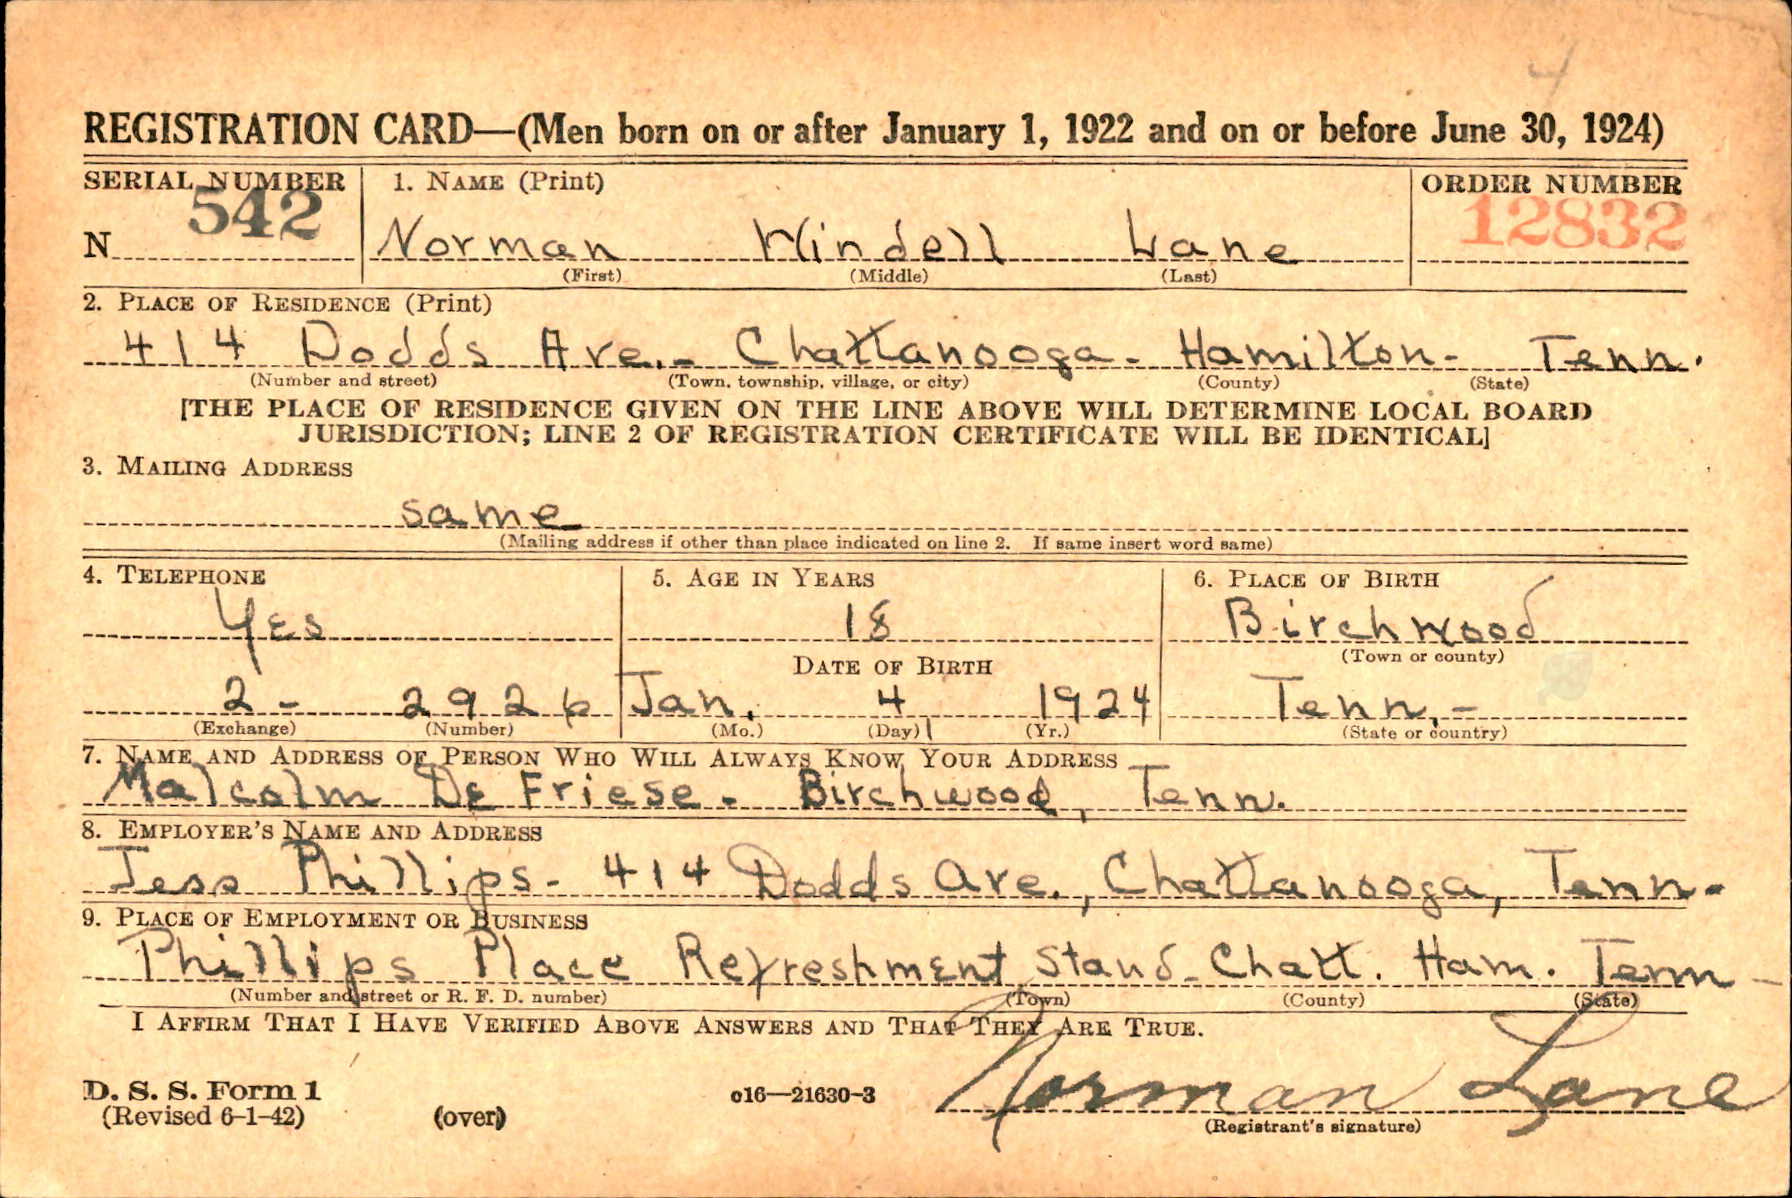 4
REGISTRATION CARD—(Men born on or after January 1, 1922 and on or before June 30, 1924)
SERIAL NUMBER 1. NAME (Print) ORDER NUMBER
N 542 Norman Windell Lane 12832
(First) (Middle) (Last)
2. PLACE OF RESIDENCE (Print)
414 Dodds Ave.- Chattanooga- Hamilton- Tenn.
(Number and street) (Town, township, village, or city) (County) (State)
[THE PLACE OF RESIDENCE GIVEN ON THE LINE ABOVE WILL DETERMINE LOCAL BOARD
JURISDICTION; LINE 2 OF REGISTRATION CERTIFICATE WILL BE IDENTICAL]
3. MAILING ADDRESS
same
(Mailing address if other than place indicated on line 2. If same insert word same)
4. TELEPHONE 5. AGE IN YEARS 6. PLACE OF BIRTH
Yes 18 Birchwood
DATE OF BIRTH (Town or county)
2- 2926 Jan. 4 1924 Tenn.-
(Exchange) (Number) (Mo.) (Day) (Yr.) (State or country)
7. NAME AND ADDRESS OF PERSON WHO WILL ALWAYS KNOW YOUR ADDRESS
Malcolm De Friese. Birchwood, Tenn.
8. EMPLOYER'S NAME AND ADDRESS
Jess Phillips- 414 Dodds Ave., Chattanooga, Tenn-
9. PLACE OF EMPLOYMENT OR BUSINESS
Phillips Place Refreshment Stand- Chatt. Ham. Tenn-
(Number and street or R. F. D. number) (Town) (County) (State)
I AFFIRM THAT I HAVE VERIFIED ABOVE ANSWERS AND THAT THEY ARE TRUE.
D. S. S. Form 1 c16—21630-3 Norman Lane
(Revised 6-1-42) (over) (Registrant's signature)